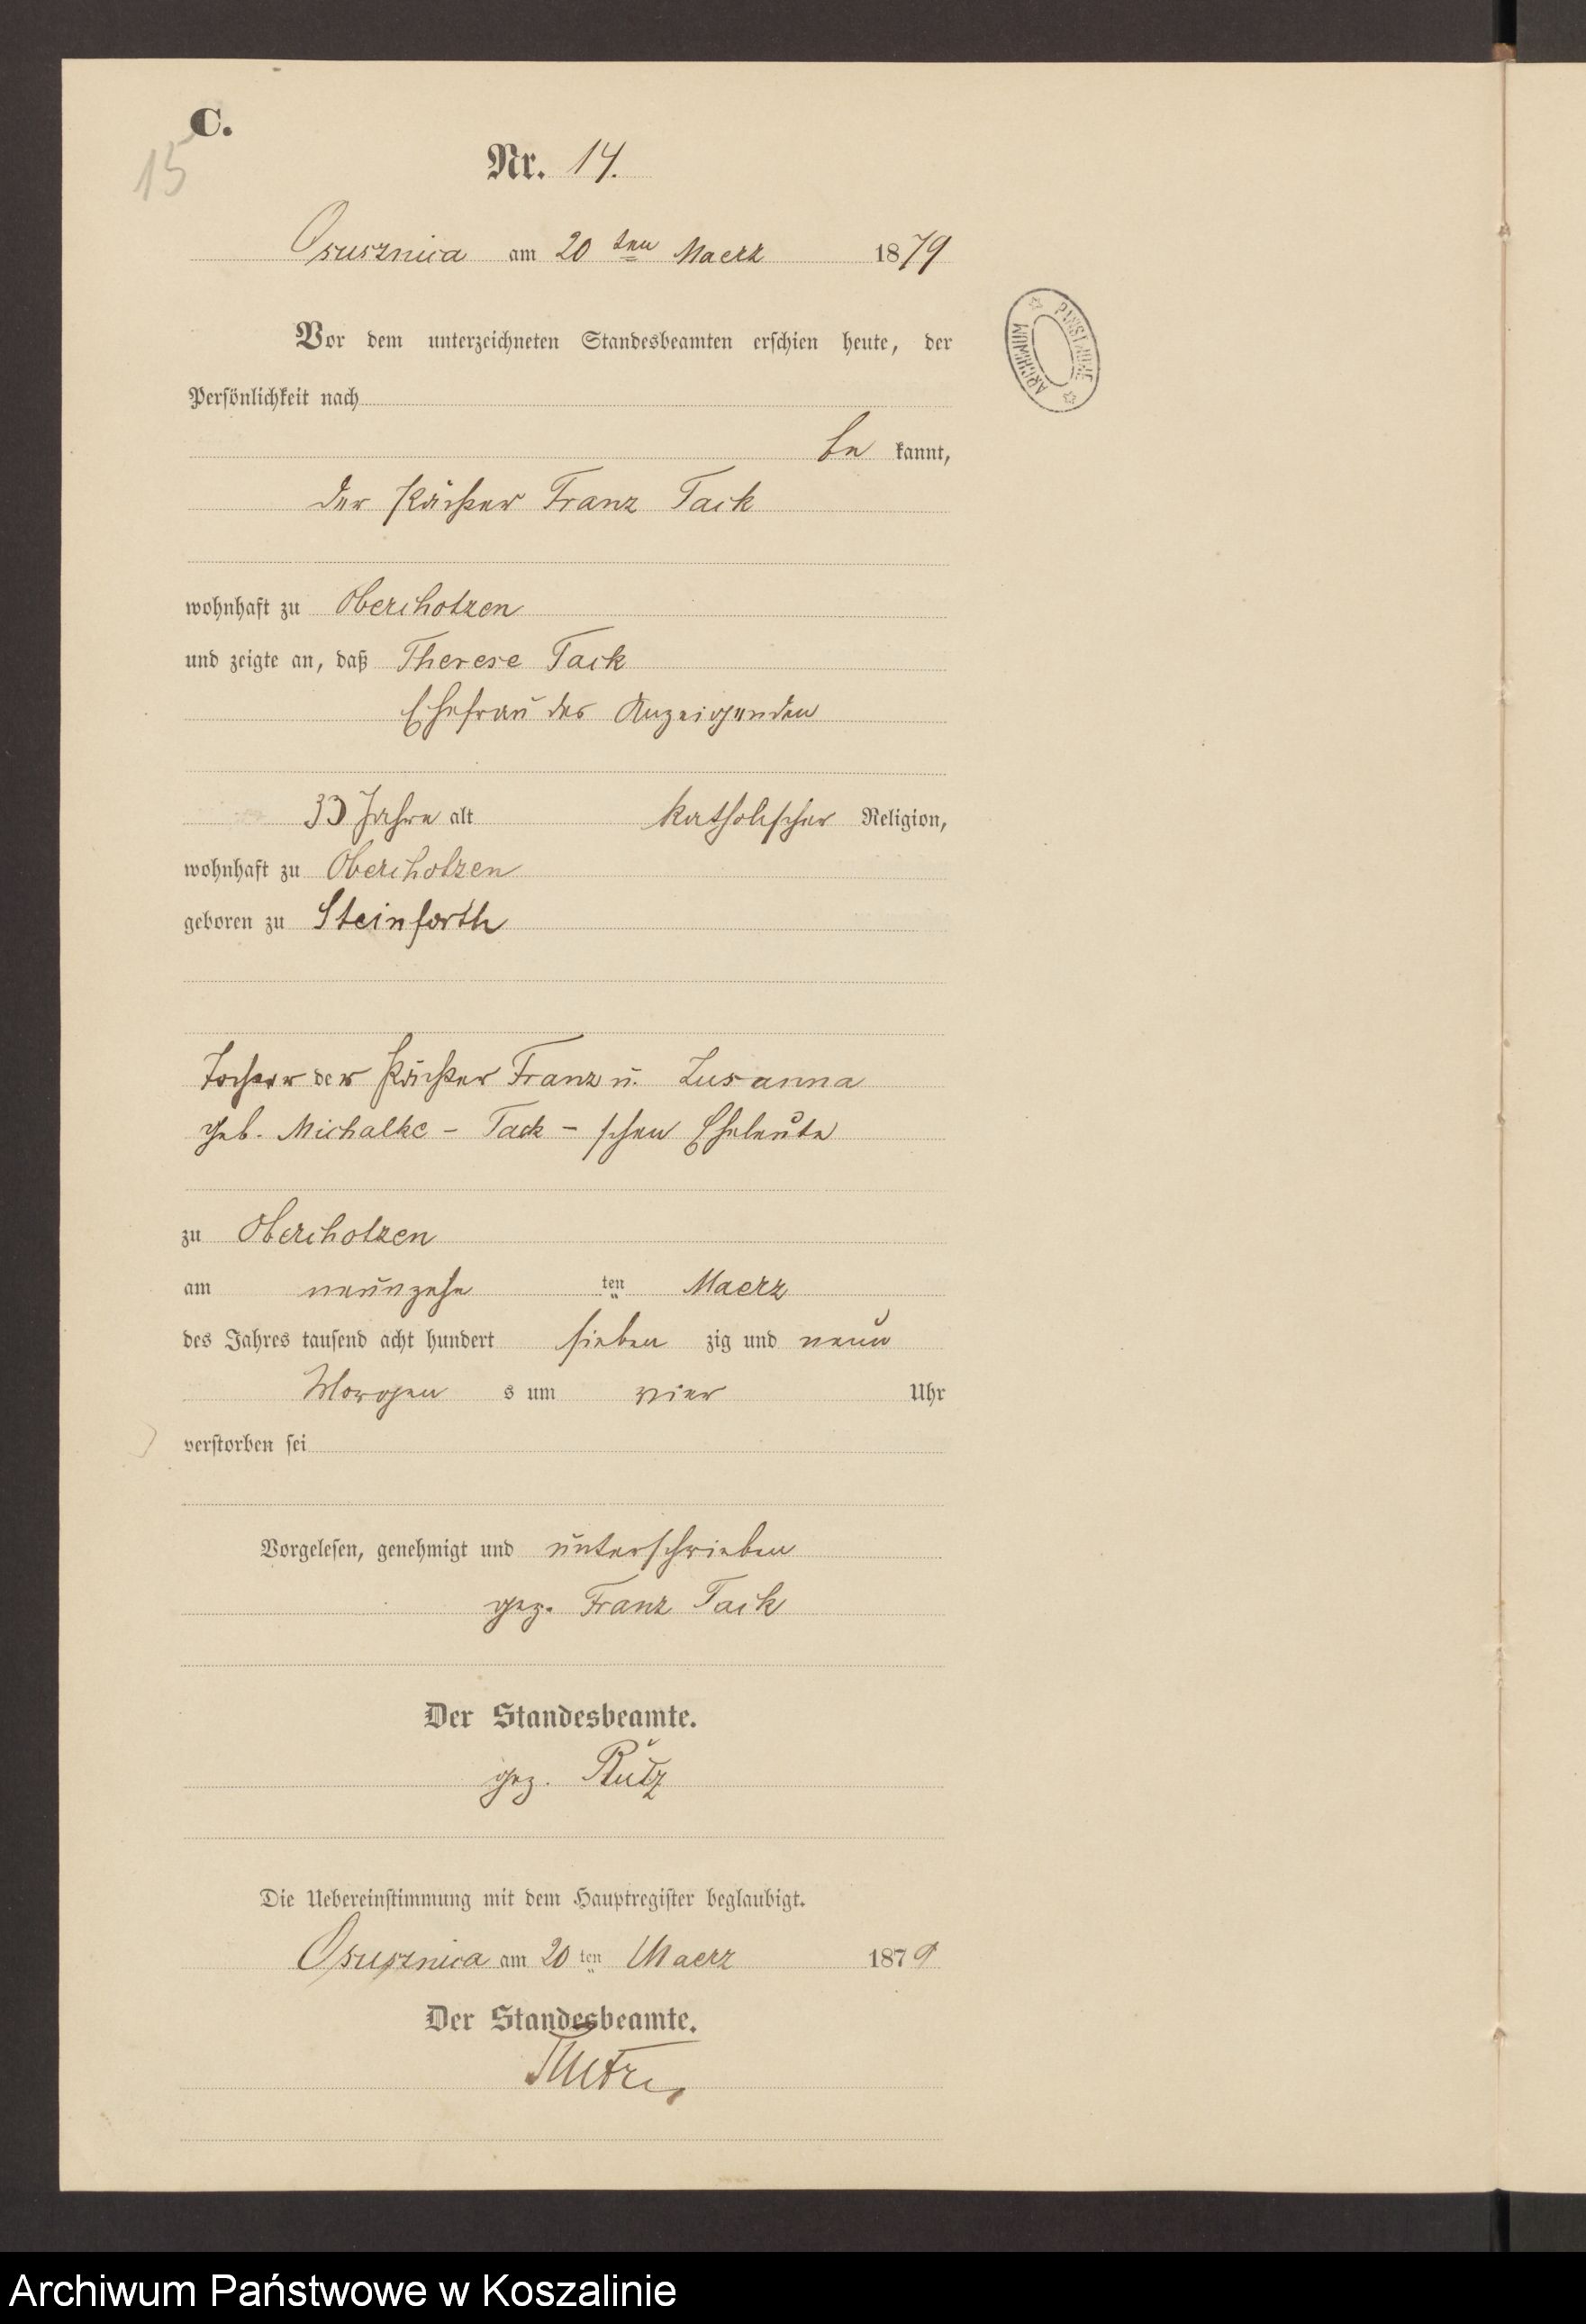 C.
15
Nr. 14.
Osusznica am 20 ten Maerz 1879
Vor dem unterzeichneten Standesbeamten erschien heute, der
Persönlichkeit nach
be kannt,
der Pächter Franz Tack
wohnhaft zu Oberchotzen
und zeigte an, daß Therese Tack
Ehefrau des Anzeigenden
33 Jahre alt katholischer Religion,
wohnhaft zu Oberchotzen
geboren zu Steinforth
Tochter der Pächter Franz u. Susanna
geb. Michalke - Tack - schen Eheleute
zu Oberchotzen
am neunzehn ten Maerz
des Jahres tausend acht hundert sieben zig und neun
Morgen s um vier Uhr
verstorben sei
Vorgelesen, genehmigt und unterschrieben
gez. Franz Tack
Der Standesbeamte.
gez. Rutz
Die Uebereinstimmung mit dem Hauptregister beglaubigt.
Osusznica am 20 ten Maerz 1879
Der Standesbeamte.
ARCHIWUM PAŃSTWOWE
Archiwum Państwowe w Koszalinie